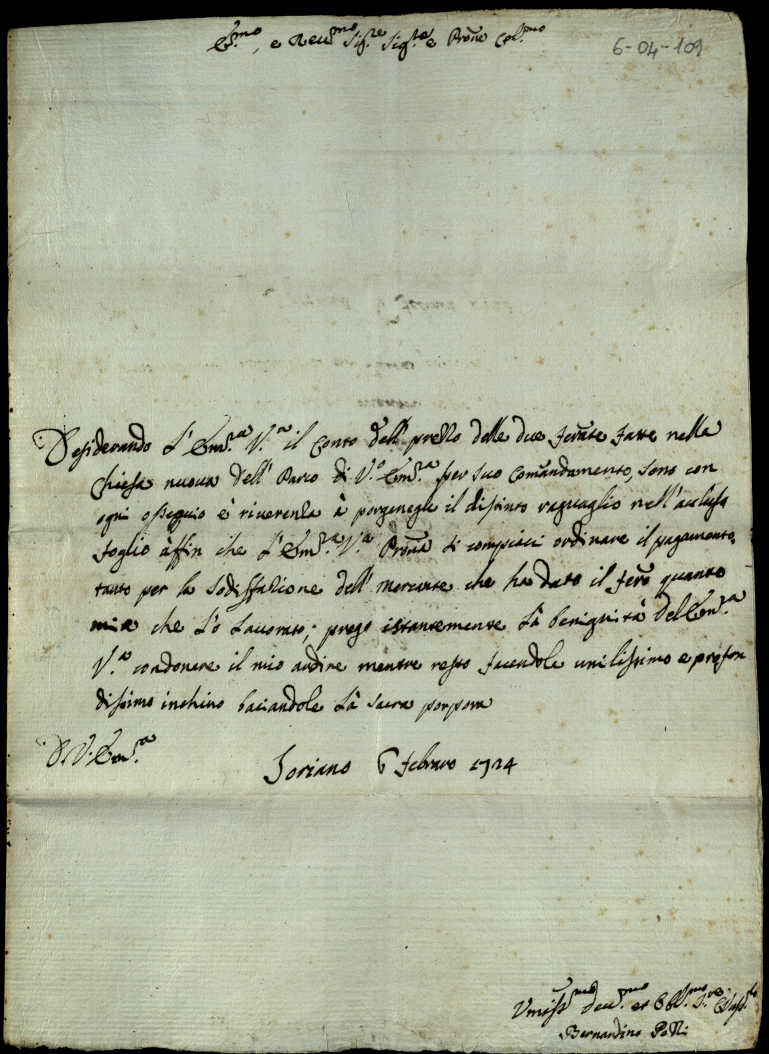 Em.mo, e Reu.mo Sig.re Sig.re e Prōne Col.mo
6-04-109
Desiderando L'Em.za V.a il Conto dell' prezzo delle due ferate fatte nella
Chiesa nuova dell' Parco di V.a Em.za per suo Comandamento, sono con
ogni ossequio è riverenza à porgenegli il distinto raguaglio nell'acclusa
foglio àffin che L'Em.za V.a Prōna si compiaci ordinare il pagamento,
tanto per la sodisfazione dell' mercante che ha dato il fero quanto
mia che L'ò Lavorato; prego istantemente Là benignità dell'Em.za
V.a condonare il mio ardire mentre resto facendole umilissimo e profon
dissimo inchino baciandole Là sacra porpora
D. V. Em.za
Soriano 6 Febraro 1724
Umiliss.mo Deu.mo et Obl.mo S.re
Bernardino